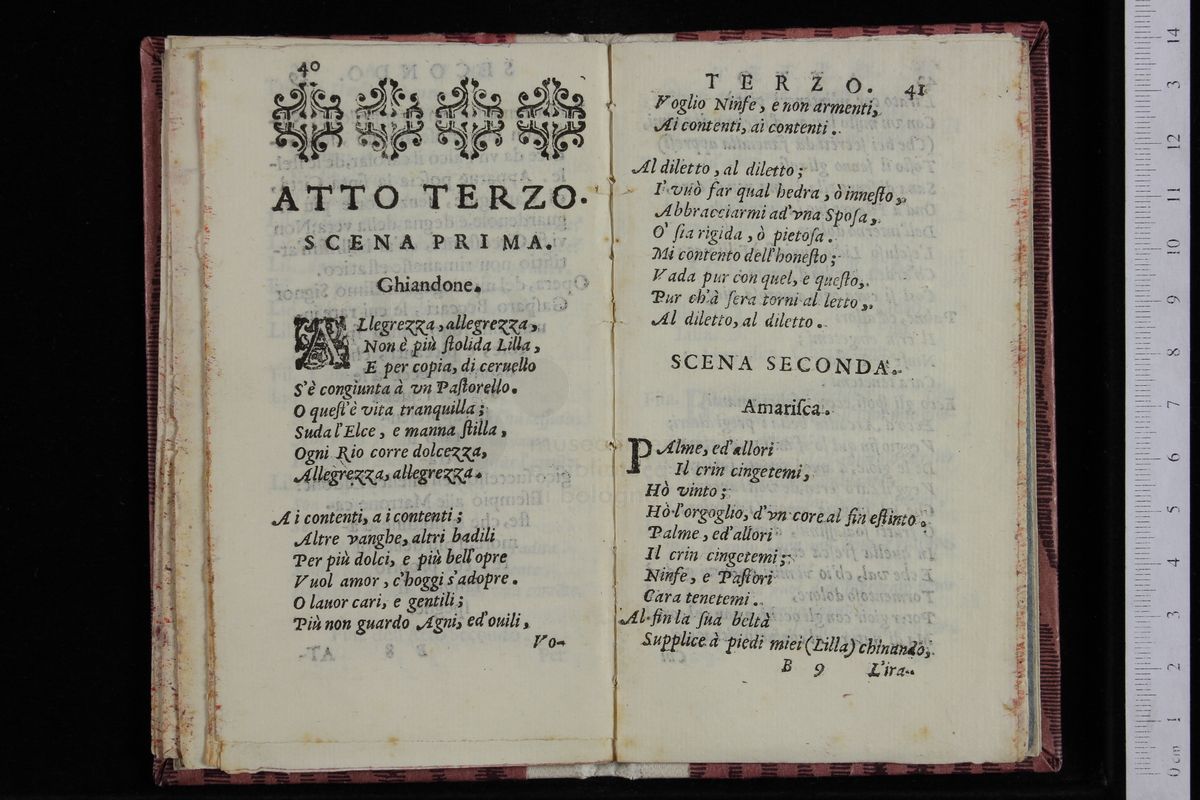 40
ATTO TERZO.
SCENA PRIMA.
Ghiandone.
ALlegrezza, allegrezza,
Non è più stolida Lilla,
E per copia, di ceruello
S'è congiunta à vn Pastorello.
O quest'è vita tranquilla;
Suda l'Elce, e manna stilla,
Ogni Rio corre dolcezza,
Allegrezza, allegrezza.
Ai contenti, ai contenti;
Altre vanghe, altri badili
Per più dolci, e più bell'opre
Vuol amor, c'hoggi s'adopre.
O lauor cari, e gentili;
Più non guardo Agni, ed'ouili,
Vo-
TERZO. 41
Voglio Ninfe, e non armenti,
Ai contenti, ai contenti.
Al diletto, al diletto;
I' vuò far qual hedra, ò innesto,
Abbracciarmi ad'vna Sposa,
O' sia rigida, ò pietosa.
Mi contento dell'honesto;
Vada pur con quel, e questo,
Pur ch'à sera torni al letto,
Al diletto, al diletto.
SCENA SECONDA.
Amarisca.
PAlme, ed'allori
Il crin cingetemi,
Hò vinto;
Hò l'orgoglio, d'vn core al fin estinto.
Palme, ed'allori
Il crin cingetemi;
Ninfe, e Pastori
Cara tenetemi.
Al fin la sua beltà
Supplice à piedi miei (Lilla) chinando,
B 9 L'ira